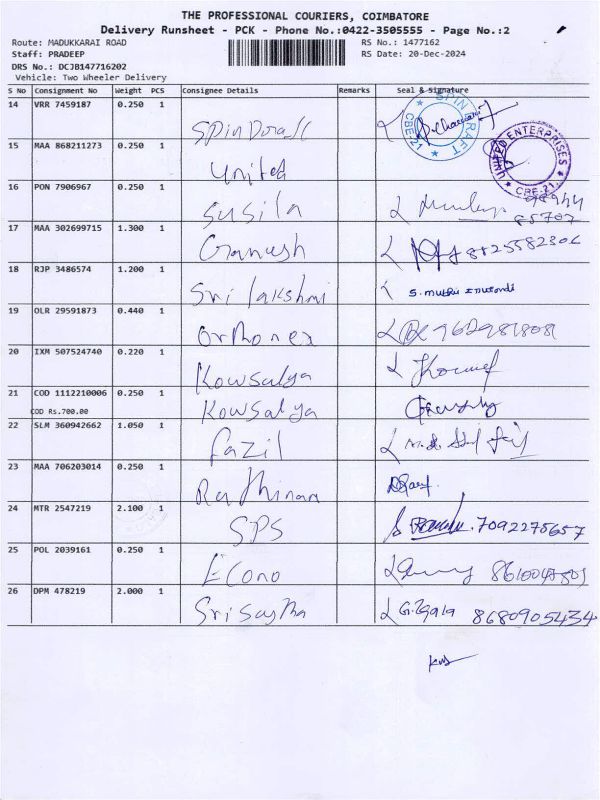 THE PROFESSIONAL COURIERS, COIMBATORE
Delivery Runsheet - PCK - Phone No.:0422-3505555 - Page No.:2
Route: MADUKKARAI ROAD RS No.: 1477162
Staff: PRADEEP RS Date: 20-Dec-2024
DRS No.: DCJB147716202
Vehicle: Two Wheeler Delivery
S No Consignment No Weight PCS Consignee Details Remarks Seal & Signature
14 VRR 7459187 0.250 1 SPIN DRAFT CBE-21
15 MAA 868211273 0.250 1 United UNITED ENTERPRISES CBE-21
16 PON 7906967 0.250 1 Susila
17 MAA 302699715 1.300 1 Ganesh 8825582306
18 RJP 3486574 1.200 1 Sri lakshmi S. muthu
19 OLR 29591873 0.440 1 Orthonex
20 IXM 507524740 0.220 1 Kowsalya
21 COD 1112210006 0.250 1 Kowsalya
COD Rs.700.00
22 SLM 360942662 1.050 1 Fazil
23 MAA 706203014 0.250 1 Rathinam
24 MTR 2547219 2.100 1 SPS 7092275657
25 POL 2039161 0.250 1 Econo
26 DPM 478219 2.000 1 Sri 8680905434